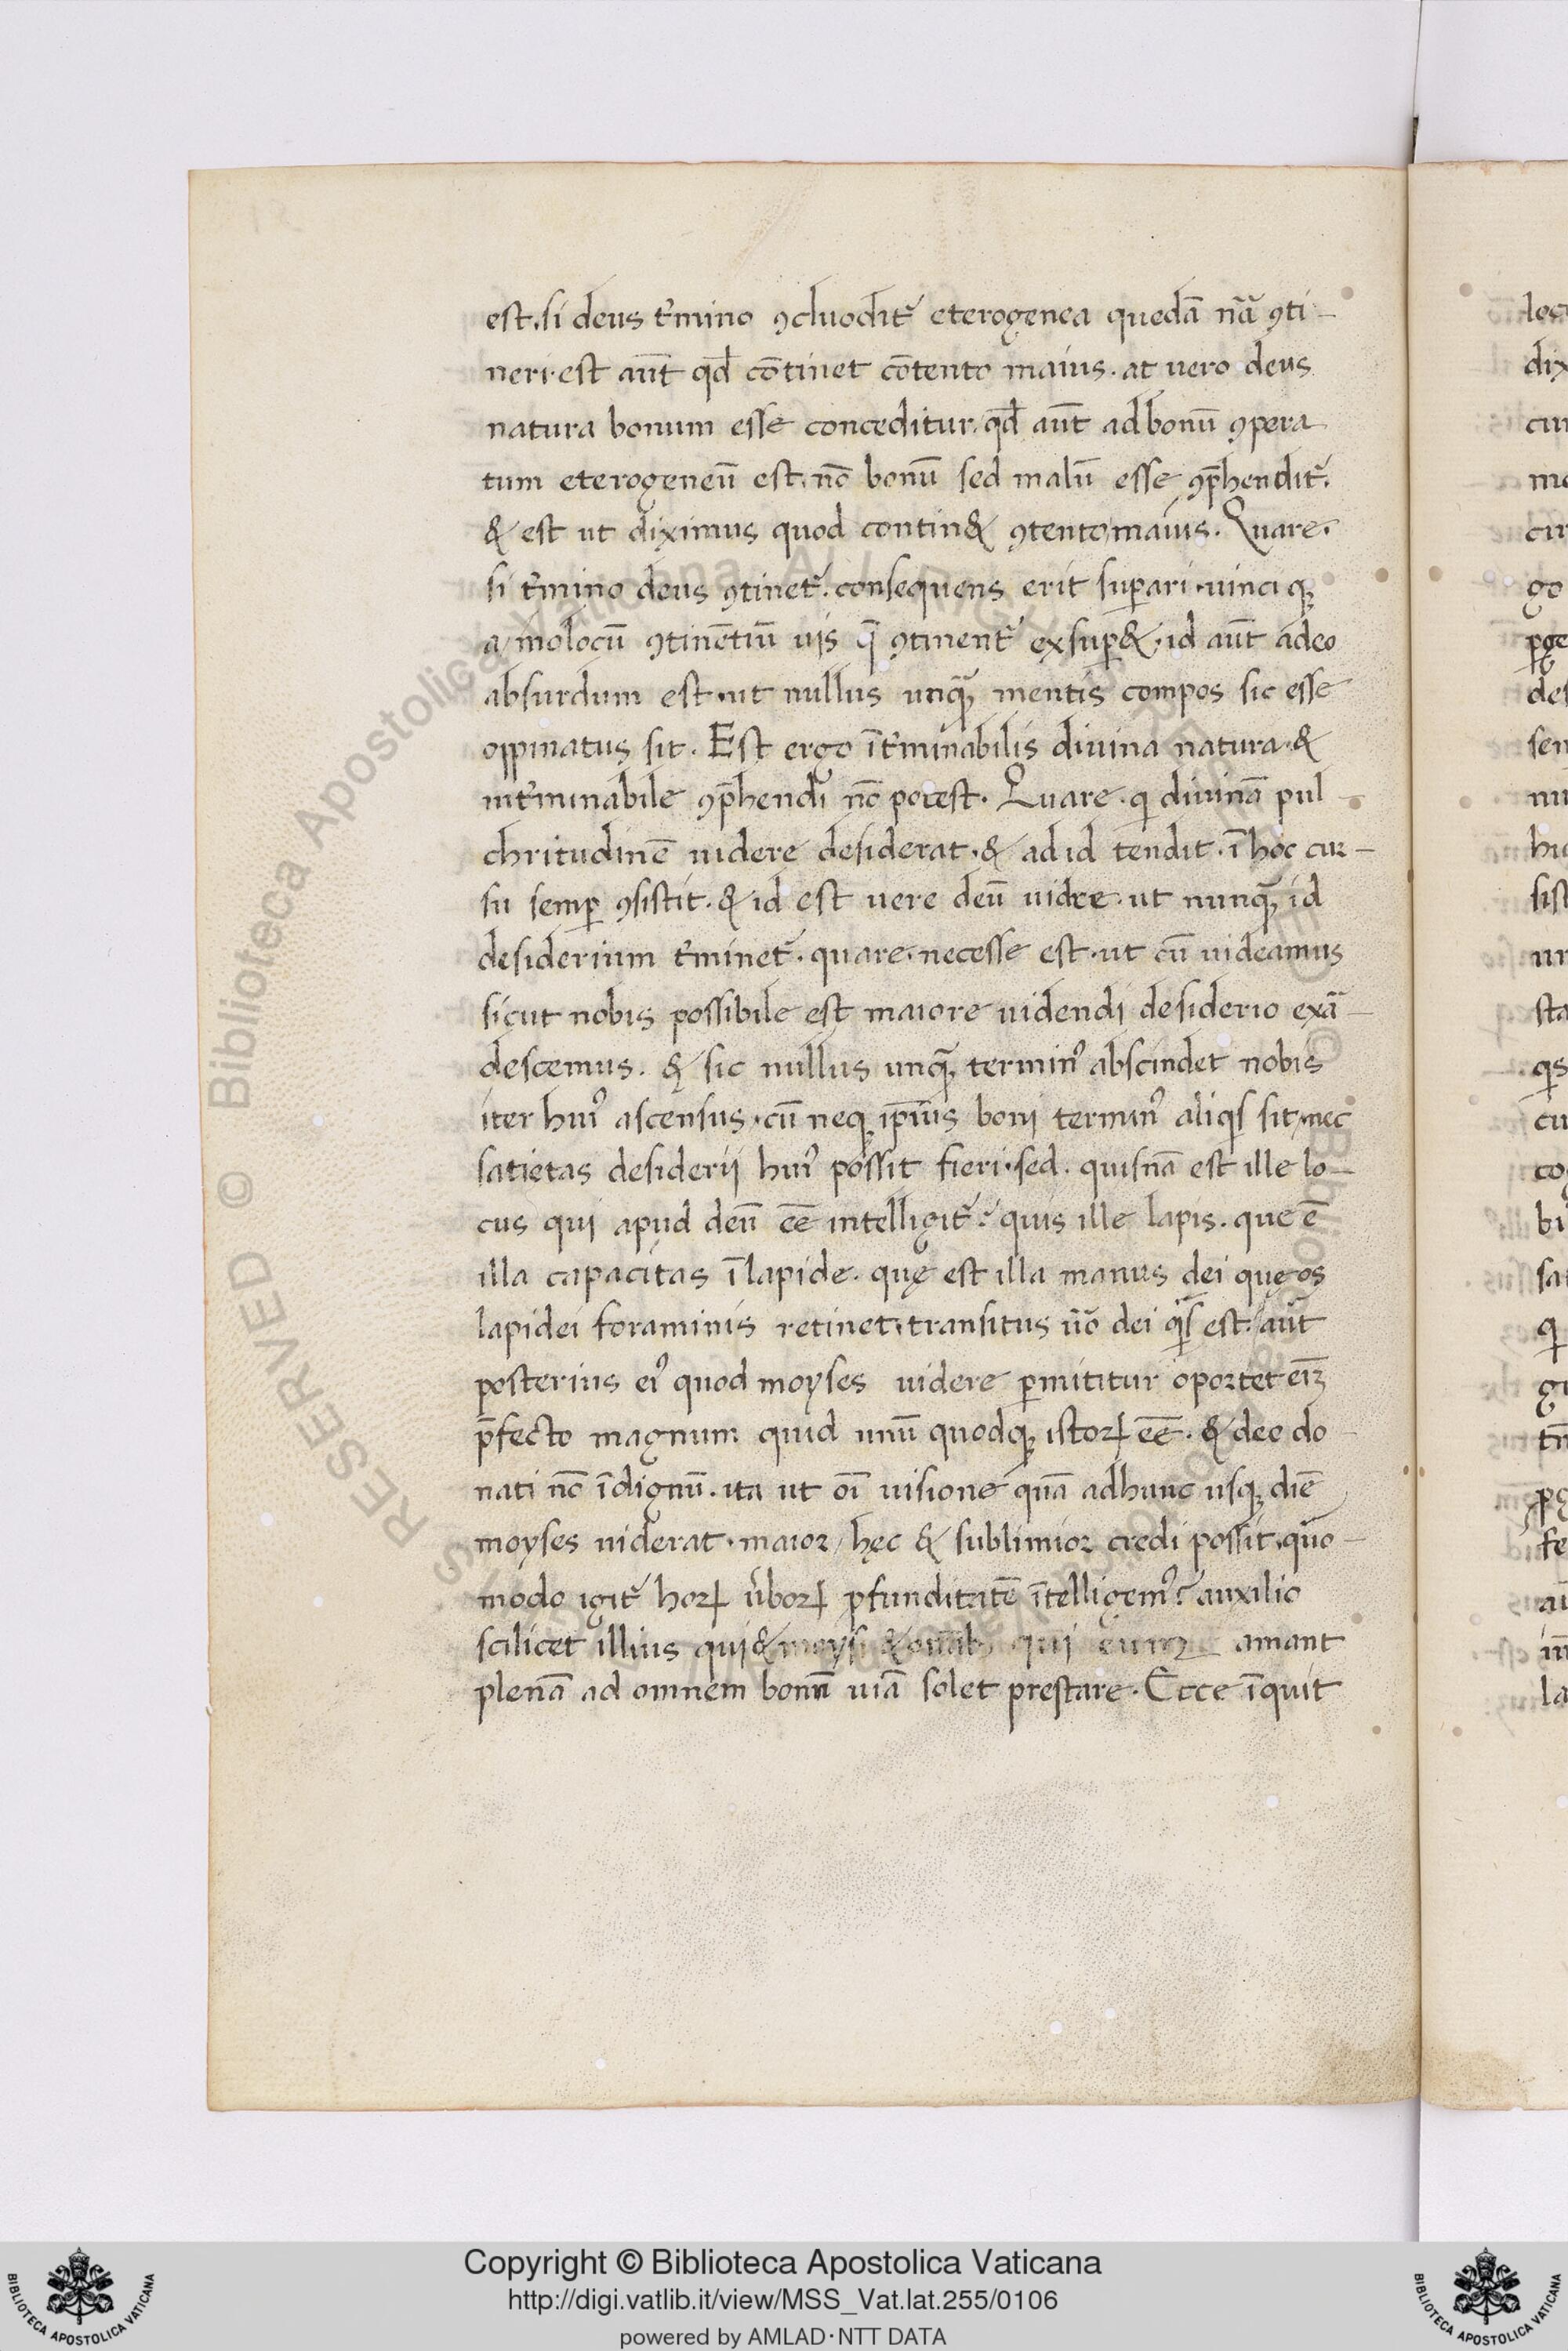 est. si deus t̄mino ꝯcluodit᷑ eterogenea quedā nāa ꝯti-
neri. est aut̄ qd̄ cōtinet cōtento maius. at uero deus
natura bonum esse conceditur. qd̄ aut̄ ad bonū ꝯpera
tum eterogeneū est. nō bonū sed malū esse ꝯp̄hendit᷑.
& est ut diximus quod contin& ꝯtento maius. Quare.
si t̄mino deus ꝯtinet᷑. consequens erit suꝑari. uinciqꝫ
a molocū ꝯtinētiū uis q̄ ꝯtinent᷑ exsuꝑ&. id aut̄ adeo
absurdum est. ut nullus unqꝫ̄ mentis compos sic esse
oppinatus sit. Est ergo īt̄minabilis diuina natura. &
int̄minabile ꝯp̄hendi nō potest. Quare. qi diuinā pul-
chritudinē uidere desiderat. & ad id tendit. ī hoc cur-
su semꝑ ꝯsistit. & id est uere deū uidere. ut nunqꝫ̄ id
desiderium t̄minet᷑. quare. necesse est. ut cū uideamus
sicut nobis possibile est maiore uidendi desiderio exā-
descemus. & sic nullus unqꝫ̄ terminꝰ abscindet nobis
iter huiꝰ ascensus. cū neqꝫ ip̄ius boni terminꝰ aliqis sit. nec
satietas desiderii huiꝰ possit fieri. sed. quisnā est ille lo-
cus qui apud deū eē intelligit᷑? quis ille lapis. que ē
illa capacitas ī lapide. quę est illa manus dei que os
lapidei foraminis retinet. transitus ūo dei qis est. aut
posterius eiꝰ quod moyses uidere ꝑmititur oportet eīꝫ
p̄fecto magnum quid unū quodqꝫ istoꝝ eē. & deo do-
nati nō īdignū. ita ut oī uisione quā ad hunc usqꝫ diē
moyses uiderat. maior hęc & sublimior credi possit. quo-
modo igit᷑ hoꝝ ūboꝝ ꝓfunditatē ītelligemꝰ? auxilio
scilicet illius qui & moysi & omībꝫ qui eum amant
plenā ad omnem bonū uiā solet prestare. Ecce īquit
Copyright © Biblioteca Apostolica Vaticana
http://digi.vatlib.it/view/MSS_Vat.lat.255/0106
powered by AMLAD·NTT DATA